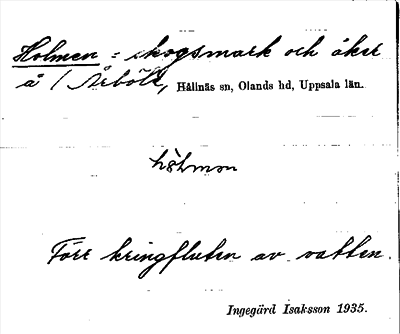 Holmen = skogsmark och åker
å / Årböle, Hållnäs sn, Olands hd, Uppsala län.
hòlmon
Förr kringfluten av vatten.
Ingegärd Isaksson 1935.